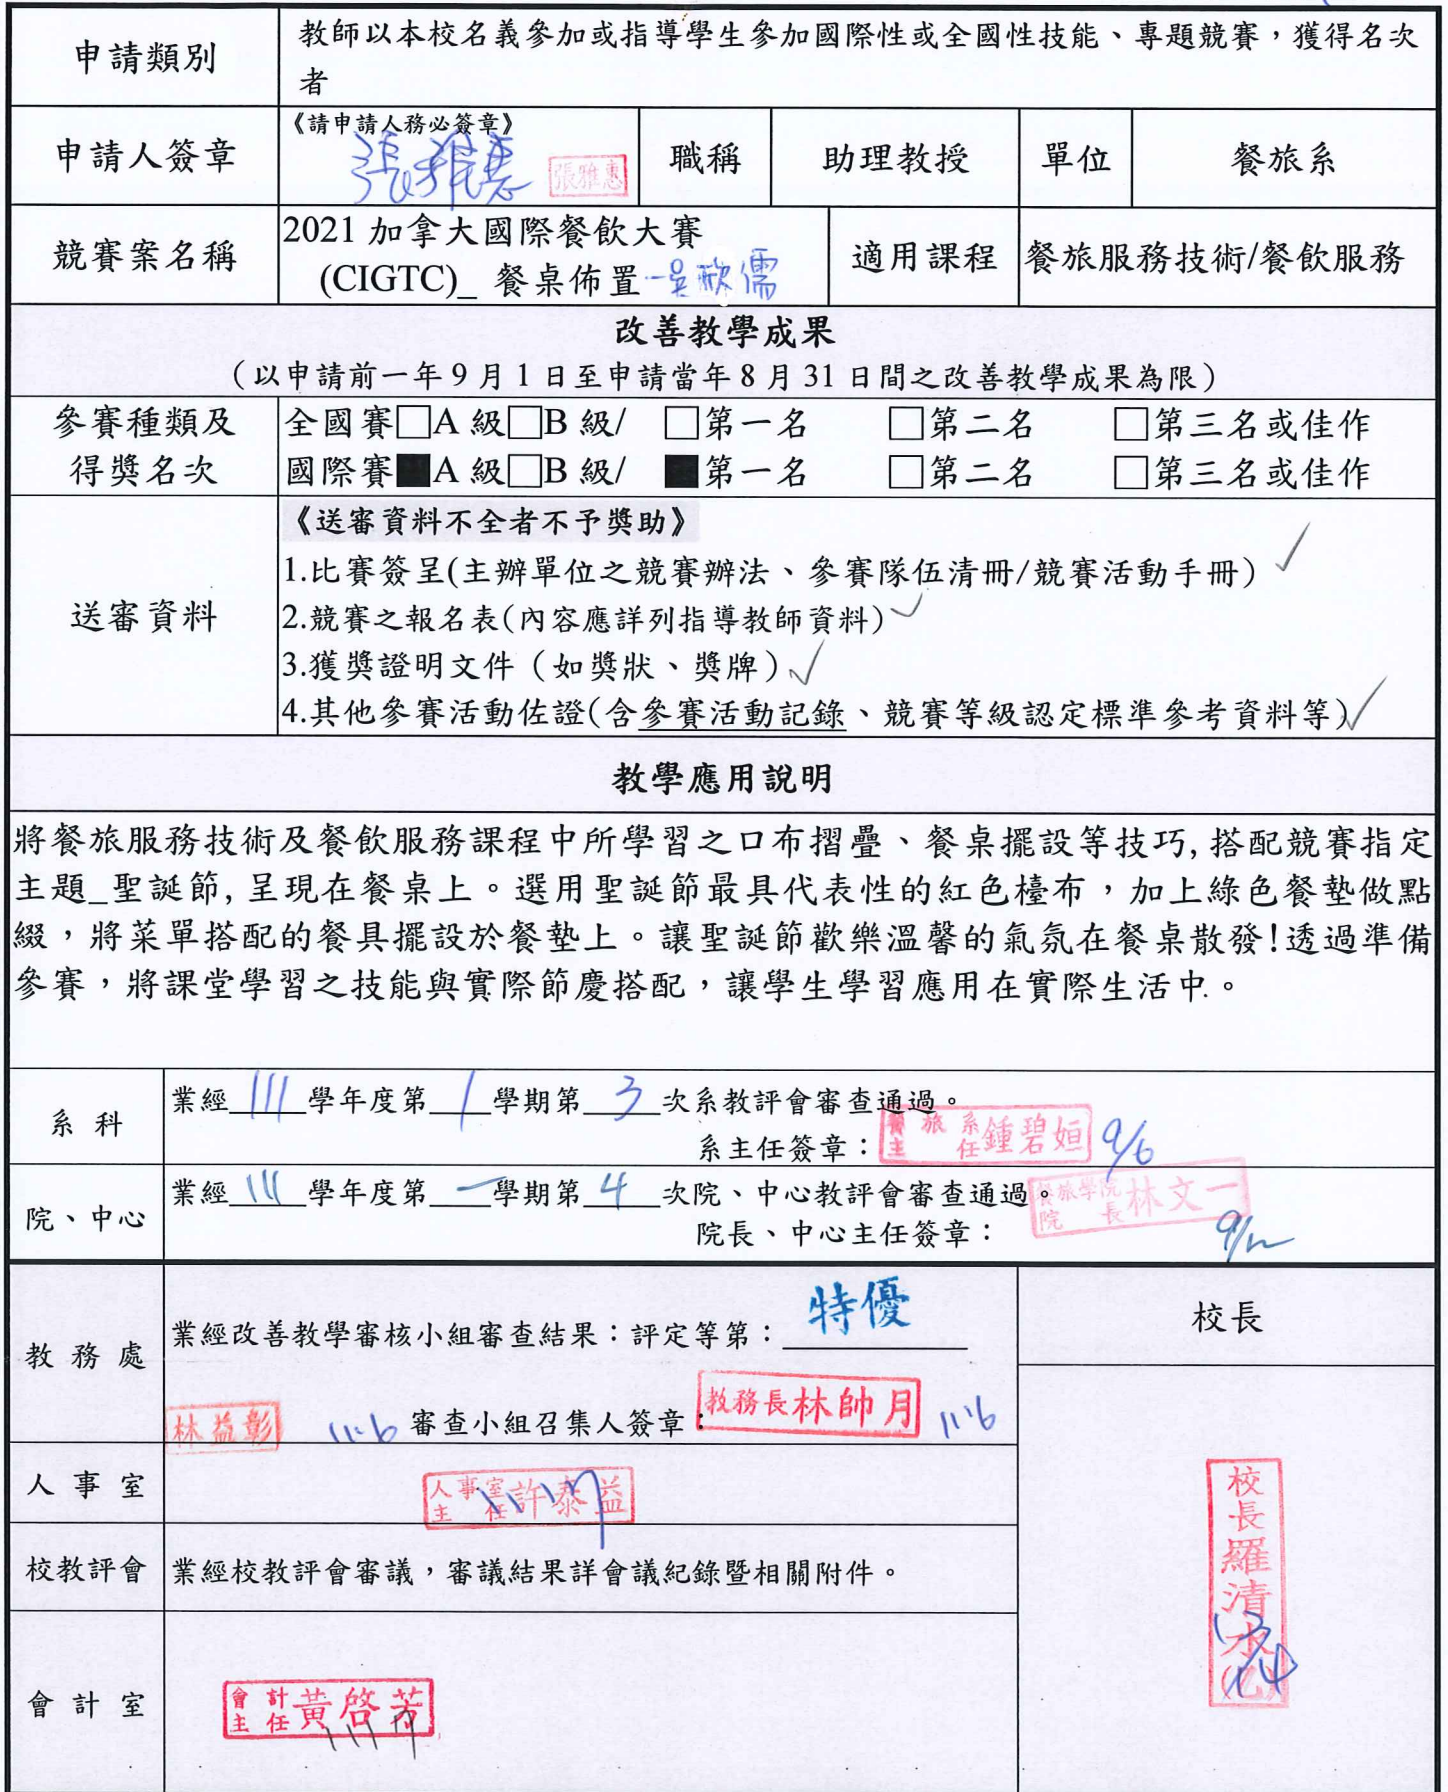 申請類別
教師以本校名義參加或指導學生參加國際性或全國性技能、專題競賽，獲得名次
者
申請人簽章
《請申請人務必簽章》
張雅惠 張雅惠
職稱
助理教授
單位
餐旅系
競賽案名稱
2021 加拿大國際餐飲大賽
(CIGTC)_ 餐桌佈置-吳歆儒
適用課程
餐旅服務技術/餐飲服務
改善教學成果
（以申請前一年 9 月 1 日至申請當年 8 月 31 日間之改善教學成果為限）
參賽種類及
得獎名次
全國賽□A 級□B 級/ □第一名 □第二名 □第三名或佳作
國際賽■A 級□B 級/ ■第一名 □第二名 □第三名或佳作
送審資料
《送審資料不全者不予獎助》
1.比賽簽呈(主辦單位之競賽辦法、參賽隊伍清冊/競賽活動手冊) ✓
2.競賽之報名表(內容應詳列指導教師資料) ✓
3.獲獎證明文件（如獎狀、獎牌）✓
4.其他參賽活動佐證(含參賽活動記錄、競賽等級認定標準參考資料等) ✓
教學應用說明
將餐旅服務技術及餐飲服務課程中所學習之口布摺疊、餐桌擺設等技巧,搭配競賽指定
主題_聖誕節,呈現在餐桌上。選用聖誕節最具代表性的紅色檯布，加上綠色餐墊做點
綴，將菜單搭配的餐具擺設於餐墊上。讓聖誕節歡樂溫馨的氣氛在餐桌散發!透過準備
參賽，將課堂學習之技能與實際節慶搭配，讓學生學習應用在實際生活中。
系科
業經 111 學年度第 1 學期第 3 次系教評會審查通過。
系主任簽章：餐旅系主任鍾碧姮 9/6
院、中心
業經 111 學年度第 一 學期第 4 次院、中心教評會審查通過。
院長、中心主任簽章： 餐旅學院院長林文一
9/12
教務處
業經改善教學審核小組審查結果：評定等第：特優
林益彰 11.16 審查小組召集人簽章：教務長林帥月 11.16
校長
人事室
人事室主任許泰益
校教評會
業經校教評會審議，審議結果詳會議紀錄暨相關附件。
校長羅清水
會計室
會計主任黃啓芳